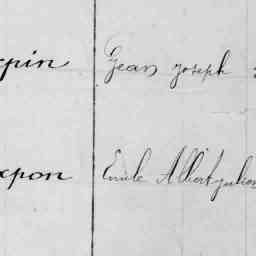 pin Jean Joseph
pon Emile Albert Julien